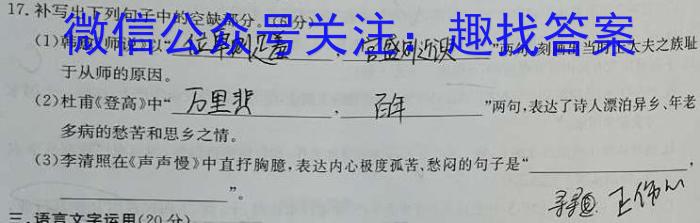 17.补写出下列句子中的空缺部分。(6分)
微信公众号关注：趣找答案
(1)韩愈《师说》以“位卑则足羞,官盛则近谀”两句,刻画出当时士大夫之族耻
于从师的原因。
(2)杜甫《登高》中“万里悲,百年”两句,表达了诗人漂泊异乡、年老
多病的愁苦和思乡之情。
(3)李清照在《声声慢》中直抒胸臆,表达内心极度孤苦、愁闷的句子是“,
”。
三、语言文字运用(20分)